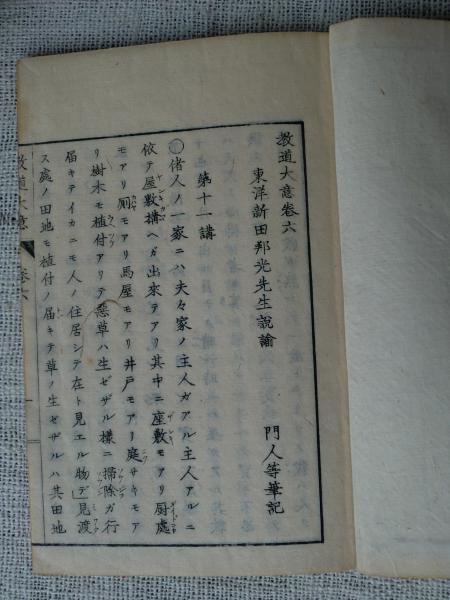 教道大意卷六
東洋新田邦光先生說諭
門人等筆記
第十一講
○偖人ノ一家ニハ夫々家ノ主人ガアル主人アルニ
依テ屋敷構ヘガ出來テアリ其中ニ座敷モアリ厨處
モアリ厠モアリ馬屋モアリ井戸モアリ庭サキモア
リ樹木モ植付アリテ惡草ハ生ゼザル樣ニ掃除ガ行
届キテイカニモ人ノ住居シテ在ト見エル物デ見渡
ス處ノ田地モ植付ノ届キテ草ノ生ゼザルハ其田地
教道大意 卷六